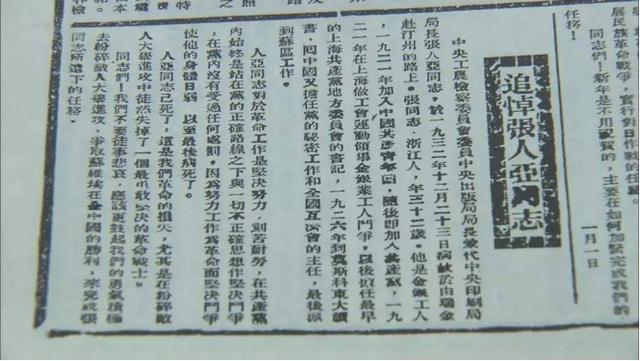 居民族革命戰爭，實行對日作戰的任務。
任務！
同志們！新年是不用祝賀的，主要在如何加緊完成我們的
一月一日
追悼張人亞同志
中央工農檢察委員會委員中央出版局局長兼代中央印刷局
局長張人亞同志，於一九三二年十二月二十三日病歿於由瑞金
赴汀州的路上。張同志，浙江人，年三十二歲。他是金銀工人
，一九二一加入中國共產青年團，隨後即加入共產黨，一九
二一年在上海做工會運動領導金銀業工人鬥爭，以後擔任最早
的上海共產黨地方委員會的書記，一九二六年到莫斯科東大讀
書，回中國又擔任黨的秘密工作和全國互濟會的主任，最後派
到蘇區工作。
人亞同志對於革命工作是堅決努力，刻苦耐勞，在共產黨
內始終是站在黨的正確路線之下與一切不正確思想作堅決鬥爭
，在黨內沒有受過任何處罰。因為努力工作為革命而堅決鬥爭
使他的身體日弱 以至最後病死了。
人亞同志已死了，這是我們革命的損失，尤其是在粉碎敵
人大舉進攻中徒然失掉了一個最勇敢堅決的革命戰士。
同志們！我們不要徒事悲哀，應該更鼓起我們的勇氣積極
去粉碎敵人大舉進攻，爭取蘇維埃在全中國的勝利，來完成張
同志所遺下的任務。